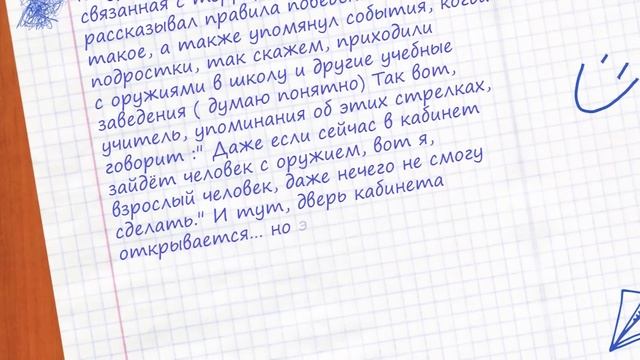 связанная с
рассказывал правила
такое, а также упомянул события, когда
подростки, так скажем, приходили
с оружиями в школу и другие учебные
заведения ( думаю понятно) Так вот,
учитель, упоминания об этих стрелках,
говорит :" Даже если сейчас в кабинет
зайдёт человек с оружием, вот я,
взрослый человек, даже нечего не смогу
сделать." И тут, дверь кабинета
открывается... но